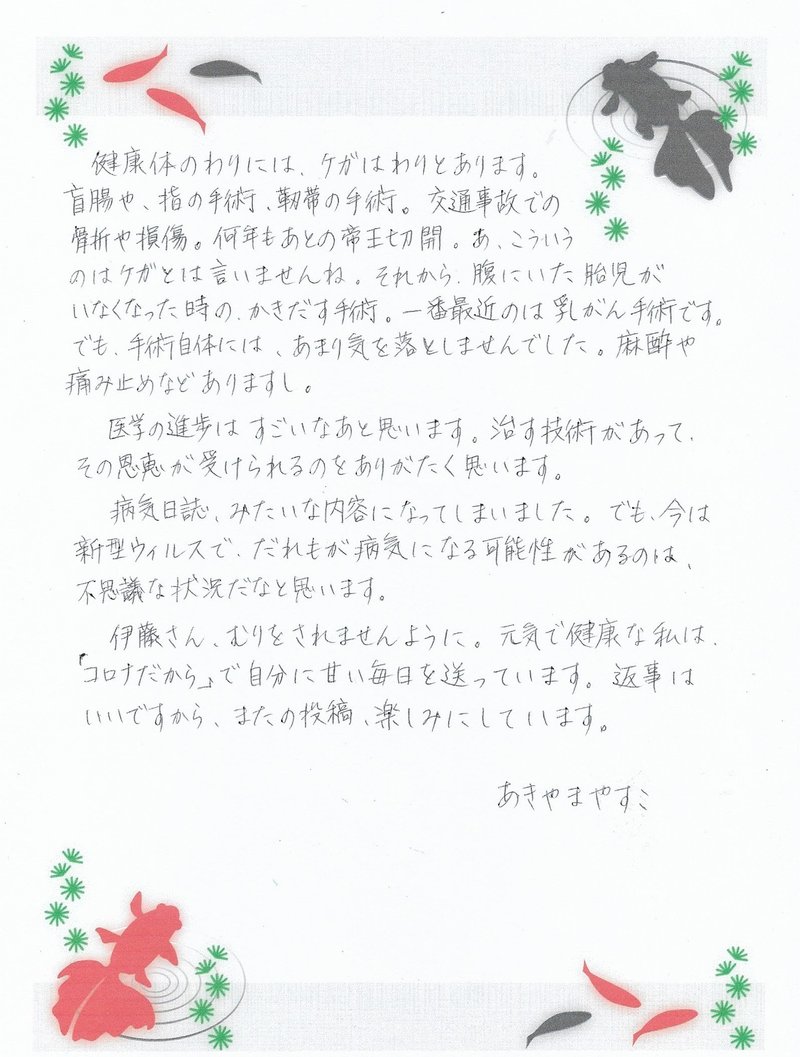 健康体のわりには、ケガはわりとあります。
盲腸や、指の手術、靭帯の手術。交通事故での
骨折や損傷。何年もあとの帝王切開。あ、こういう
のはケガとは言いませんね。それから、腹にいた胎児が
いなくなった時の、かきだす手術。一番最近のは乳がん手術です。
でも、手術自体には、あまり気を落としませんでした。麻酔や
痛み止めなどありますし。
医学の進歩はすごいなあと思います。治す技術があって、
その恩恵が受けられるのをありがたく思います。
病気日誌、みたいな内容になってしまいました。でも、今は
新型ウィルスで、だれもが病気になる可能性があるのは、
不思議な状況だなと思います。
伊藤さん、むりをされませんように。元気で健康な私は、
「コロナだから」で自分に甘い毎日を送っています。返事は
いいですから、またの投稿、楽しみにしています。
あきやまやすこ